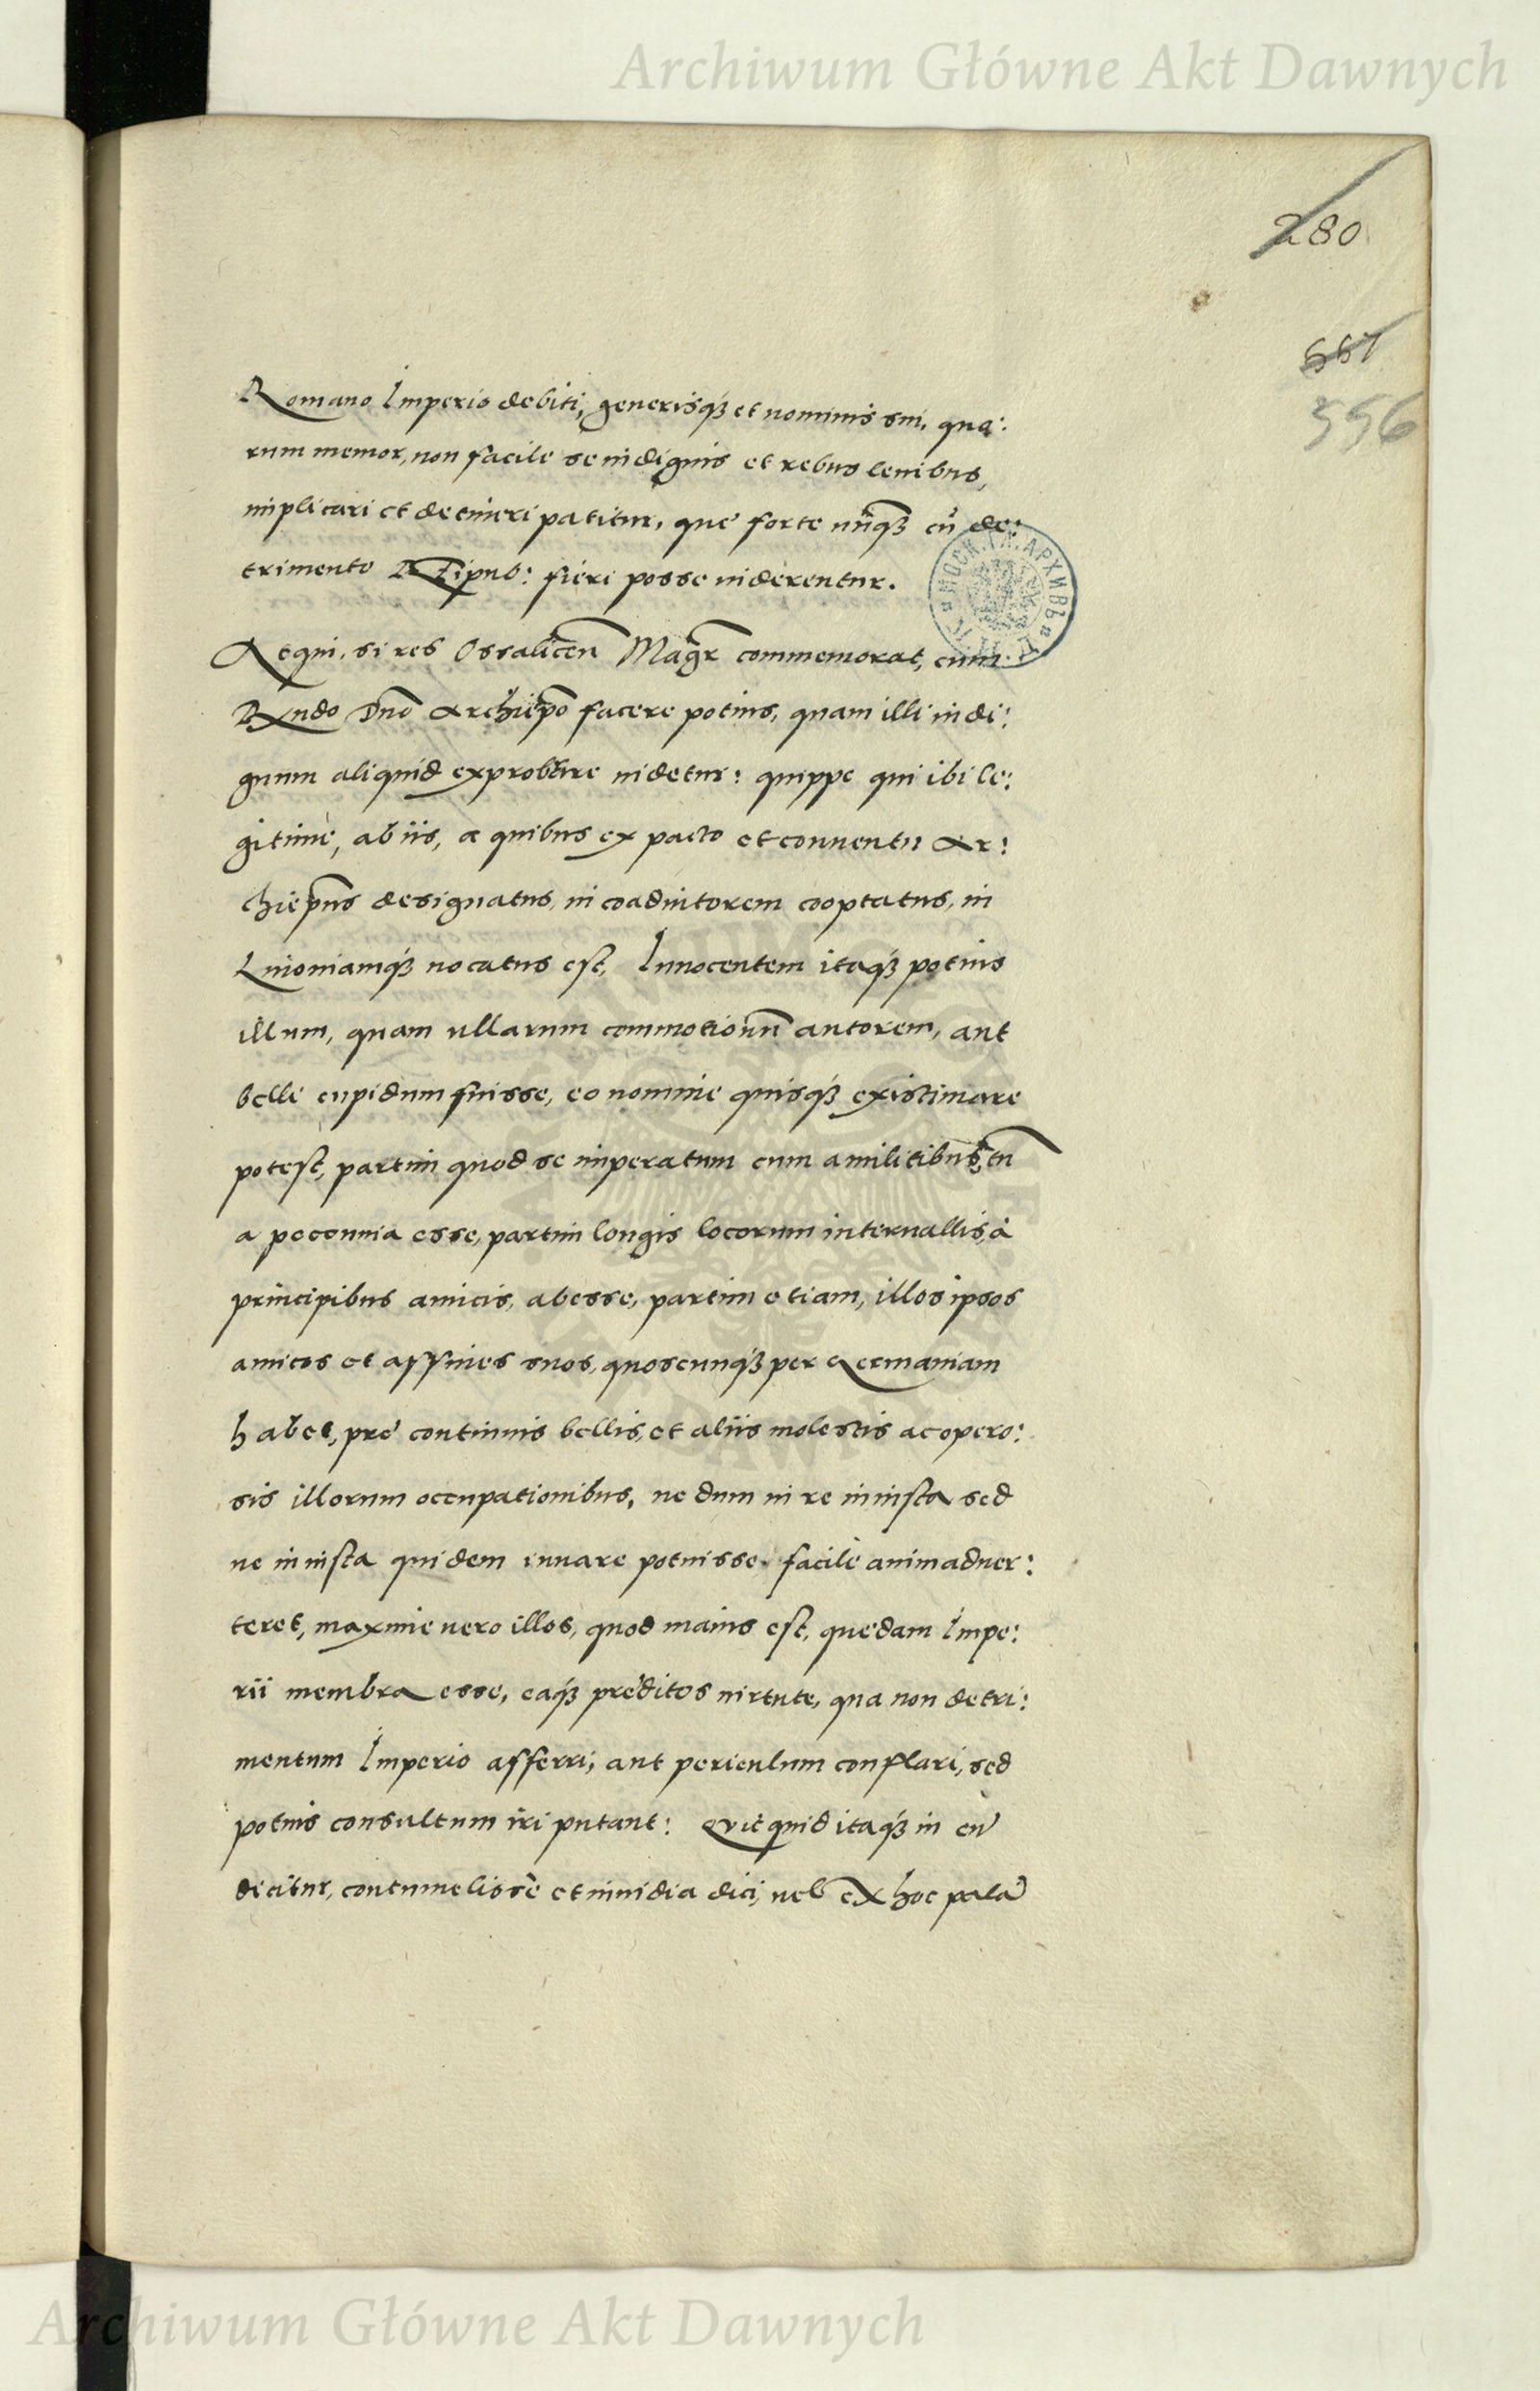 Archiwum Główne Akt Dawnych
280
556
Romano Imperio debiti, generisq́ꝫ et nominis sui, qua:
rum memor, non facile se indignis et rebus lenibus,
implicari et detineri patitur, que forte unq̃ꝫ cũ de:
trimento Reipub: fieri posse uiderentur.
Aequi, si res Ossalicen̄ Magr̄ commemorat, cum
Rx̄ndo Dn̄o Archiep̄o facere potius, quam illi indi:
gnum aliquid exprobrare uidetur: quippe qui ibi le:
gitime, ab iis, a quibus ex pacto et conuentu Ar:
chiep̄us designatus, in coadiutorem cooptatus, in
Liuoniamq́ꝫ uocatus est, Innocentem itaq́ꝫ potius
illum, quam ullarum commotionū autorem, aut
belli cupidum fuisse, eo nomine quisq́ꝫ existimare
potest, partim quod se imperatum cum a militibus, tū
a peccunia esse, partim longis locorum interuallis, à
principibus amicis, abesse, partim etiam, illos ipsos
amicos et affines suos, quoscunq́ꝫ per Germaniam
habet, pre continuis bellis, et aliis molestis ac opero:
sis illorum occupationibus, ne dum in re iniusta sed
ne in iusta quidem iuuare potuisse. facile animaduer:
teret, maxime uero illos, quod maius est, quedam Impe:
rii membra esse, eaq́ꝫ preditos uirtute, qua non detri:
mentum Imperio afferri, aut periculum conflari, sed
potius consultum iri putant: Quicquid itaq́ꝫ in eū
dicitur, contumeliose et inuidia dici, uel ex hoc palā
Archiwum Główne Akt Dawnych